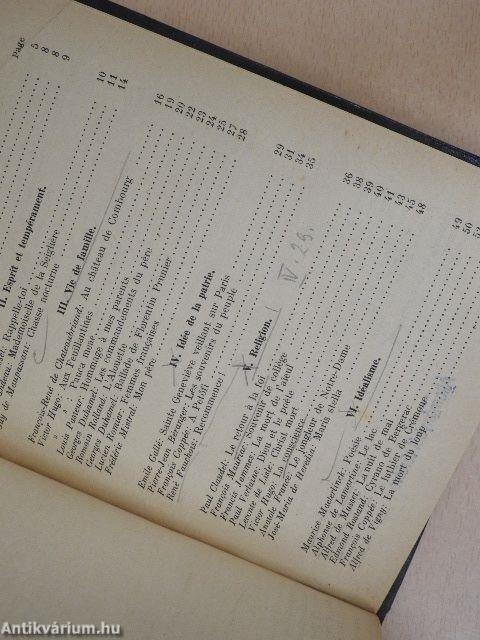 page
5
8
8
9
II. Esprit et tempérament.
Rappelle-toi
Mademoiselle de la Seiglière
Maupassant: Chasse nocturne
III. Vie de famille.
François-René de Chateaubriand: Au château de Combourg
Victor Hugo: Aux Feuillantines
" " Pauca meae
Louis Pasteur: Hommage à mes parents
Georges Duhamel: Les commandements du père
Romain Rolland: L'Alouette
Georges Duhamel: Ballade de Florentin Prunier
Lucien Romier: Femmes françaises
Frédéric Mistral: Mon père
10
11
14
16
19
20
22
23
24
25
27
28
IV. Idée de la patrie.
Emile Gallé: Sainte Geneviève veillant sur Paris
Pierre-Jean Béranger: Les souvenirs du peuple
François Coppée: A Pistoït
René Fauchois: Recommence!
29
31
34
35
V. Religion.
IV. 25.
Paul Claudel: Le retour à la foi
François Mauriac: Souvenirs de collège
Francis Jammes: La mort de l'aïeul
Paul Verlaine: Dieu et le poète
Leconte de Lisle: Christ mort
Victor Hugo: La conscience
Anatole France: Le jongleur de Notre-Dame
José-Maria de Heredia: Maris stella
36
38
39
40
41
43
45
48
VI. Idéalisme.
Maurice Maeterlinck: Poésie
Alphonse de Lamartine: Le lac
Alfred de Musset: La nuit de mai
Edmond Rostand: Cyrano de Bergerac
François Coppée: Le luthier de Crémone
Alfred de Vigny: La mort du loup
49
50
Antikvárium.hu